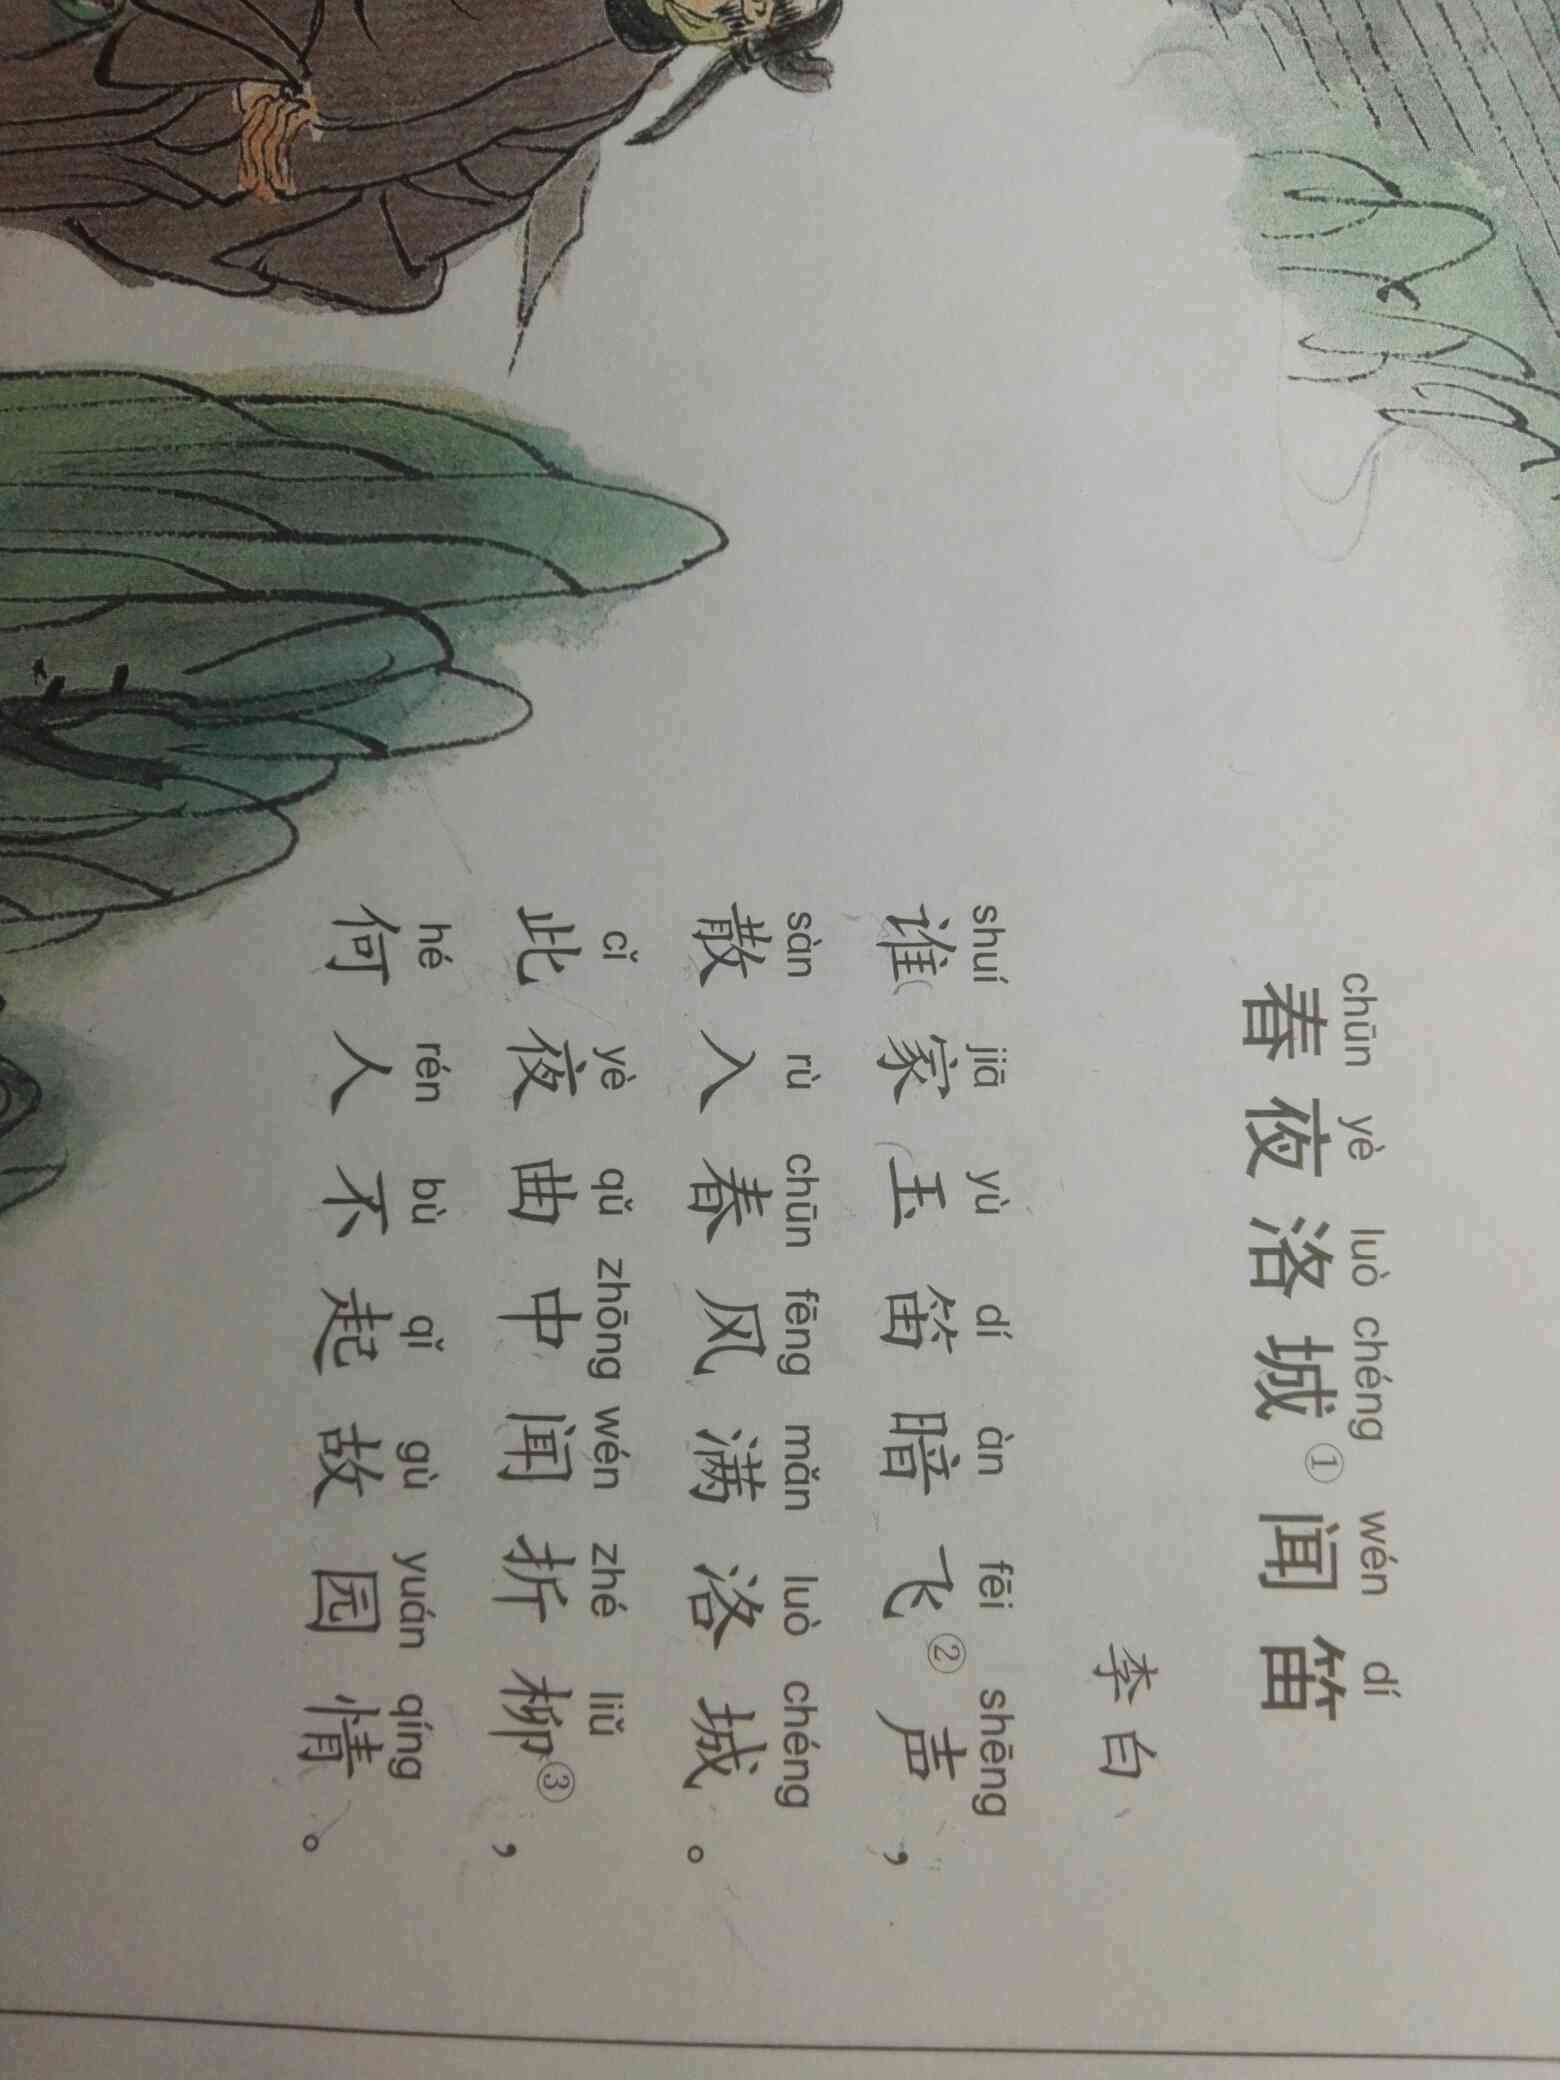 chūn yè luò chéng wén dí
春夜洛城①闻笛
李白
shuí jiā yù dí àn fēi shēng
谁家玉笛暗飞②声，
sàn rù chūn fēng mǎn luò chéng
散入春风满洛城。
cǐ yè qǔ zhōng wén zhé liǔ
此夜曲中闻折柳③，
hé rén bù qǐ gù yuán qíng
何人不起故园情。